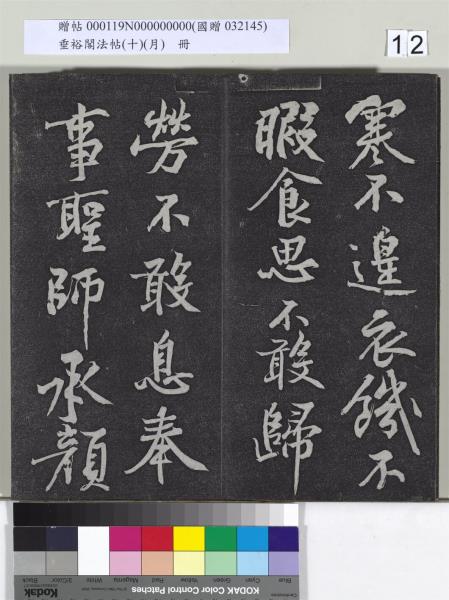 贈帖 000119N000000000(國贈 032145)
垂裕閣法帖(十)(月) 冊
12
寒不遑衣饑不
暇食思不敢歸
勞不敢息奉
事聖師承顏
Kodak Color Control Patches
Blue Cyan Green Yellow Red Magenta White 3/Color Black